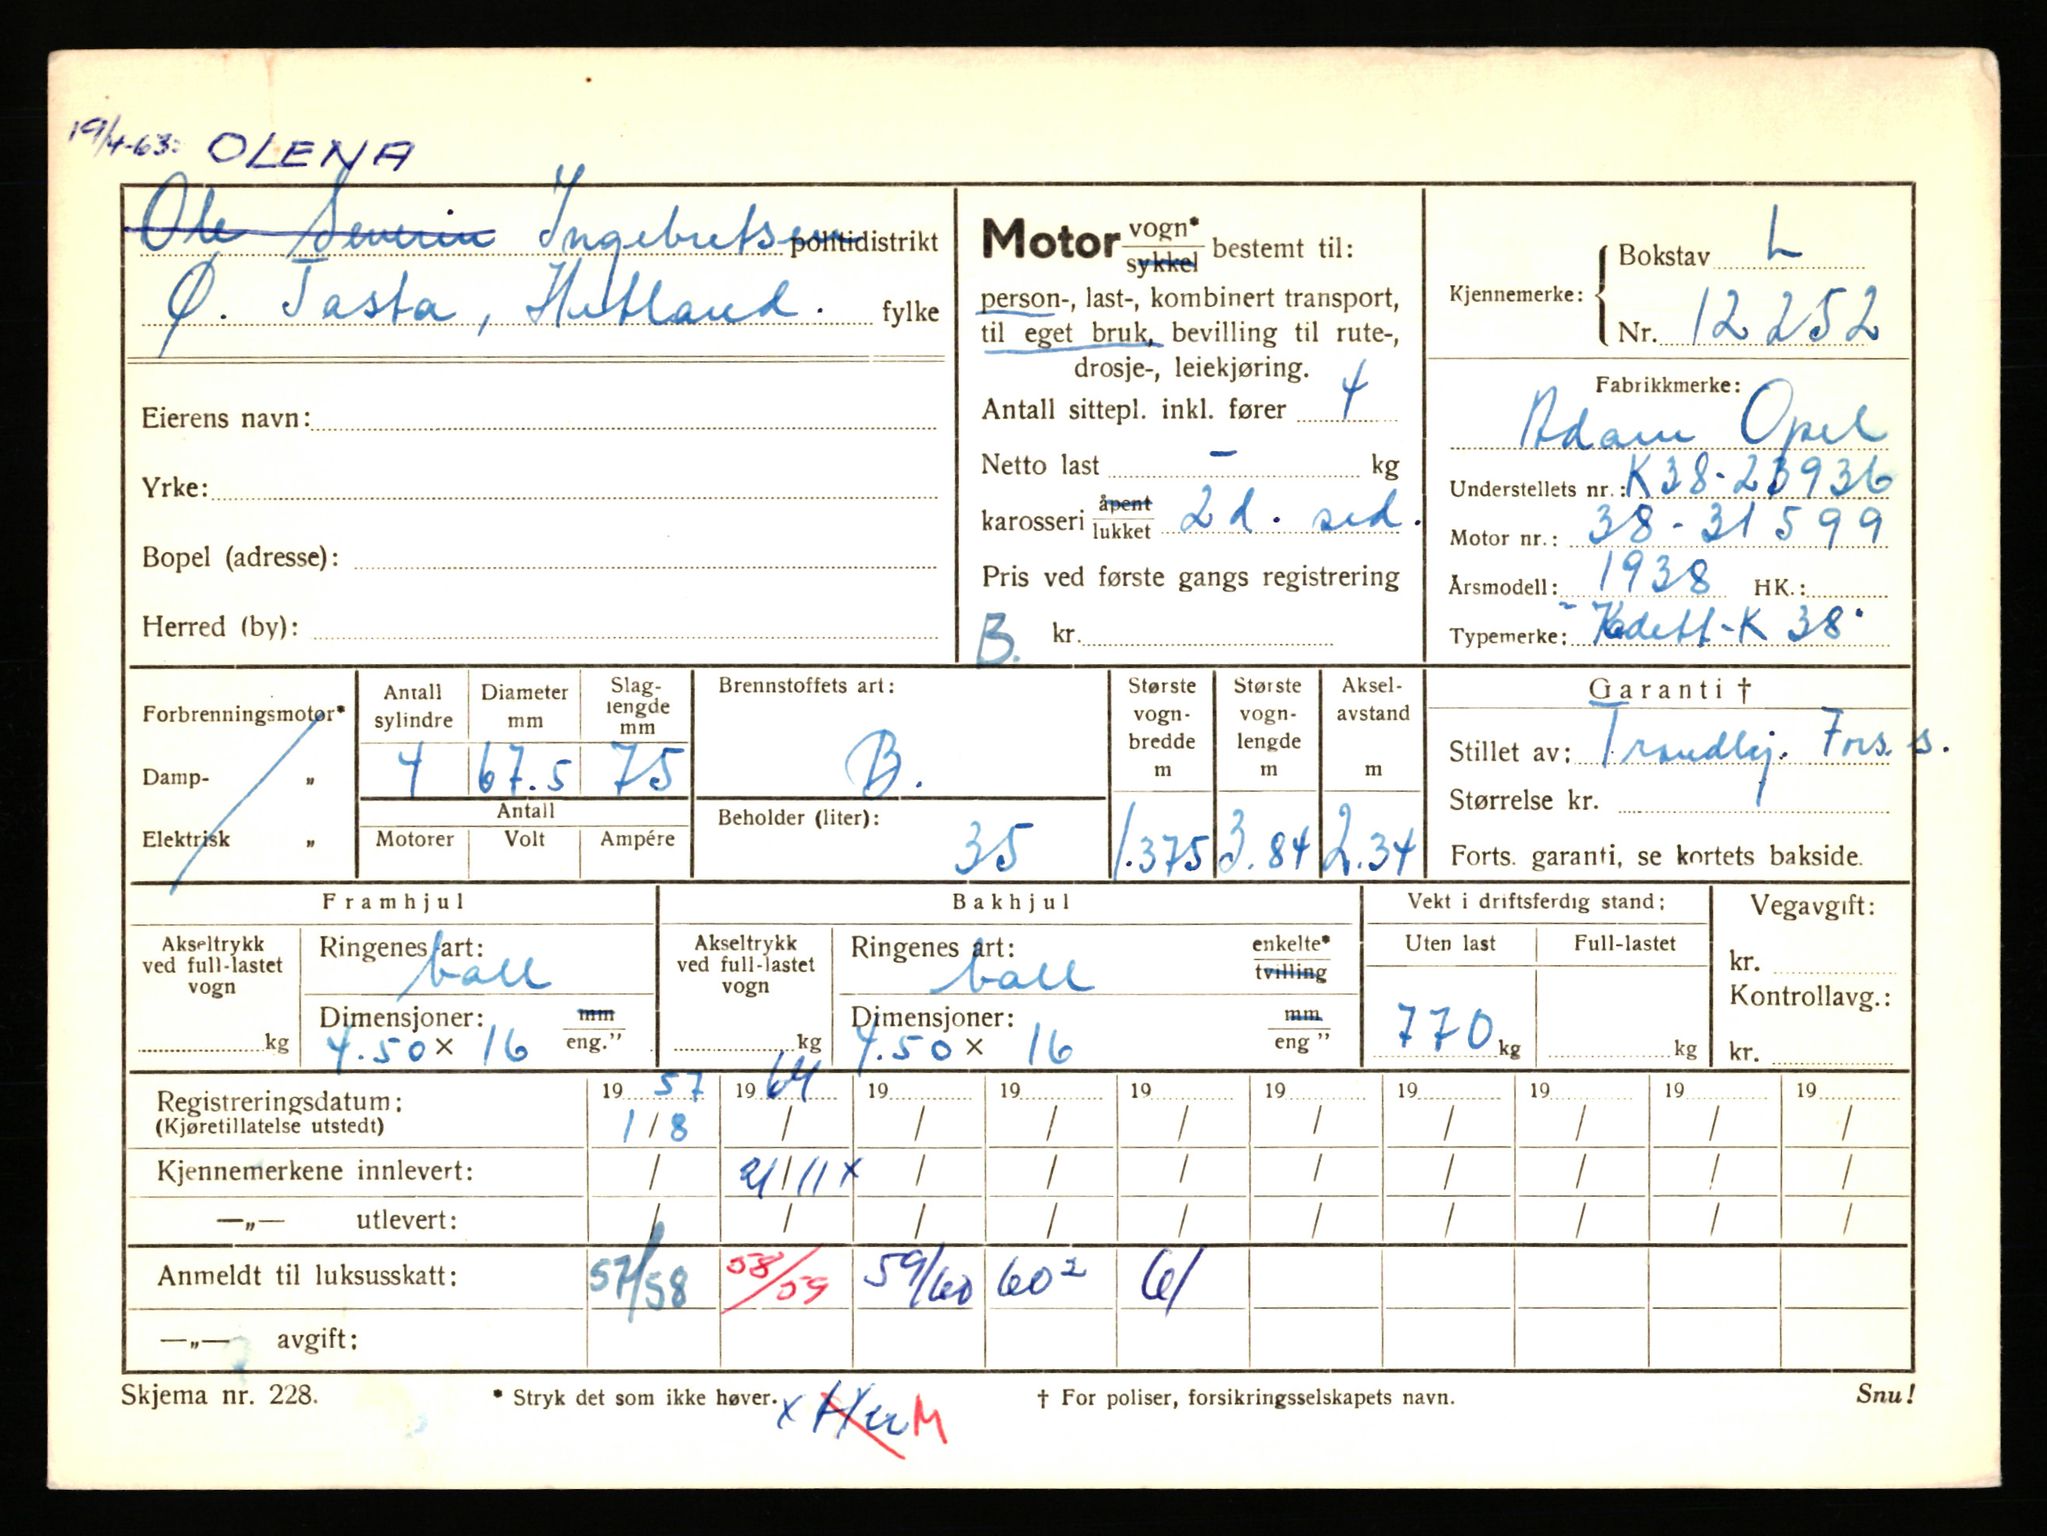 19/4-63: OLENA
Ole Severin Ingebretsen politidistrikt
Ø. Tasta, Hetland. fylke
Eierens navn:
Yrke:
Bopel (adresse):
Herred (by):
Motor vogn* sykkel bestemt til:
person-, last-, kombinert transport,
til eget bruk, bevilling til rute-,
drosje-, leiekjøring.
Antall sittepl. inkl. fører 4
Netto last - kg
karosseri åpent lukket 2 d. sed.
Pris ved første gangs registrering
B. kr.
Kjennemerke: Bokstav L
Nr. 12252
Fabrikkmerke:
Adam Opel
Understellets nr.: K38-23936
Motor nr.: 38-31599
Årsmodell: 1938 HK.:
Typemerke: Kadett-K 38
Forbrenningsmotor*
Damp- „
Elektrisk „
Antall sylindre Diameter mm Slaglengde mm
4 67.5 75
Antall
Motorer Volt Ampére
Brennstoffets art:
B.
Beholder (liter):
35
Største vogn-bredde m
1.375
Største vogn-lengde m
3.84
Aksel-avstand m
2.34
Garanti †
Stillet av: Trondhj. Fors. s.
Størrelse kr.
Forts. garanti, se kortets bakside.
Framhjul
Akseltrykk ved full-lastet vogn
kg
Ringenes art:
ball
Dimensjoner: mm eng."
4.50 × 16
Bakhjul
Akseltrykk ved full-lastet vogn
kg
Ringenes art: enkelte* tvilling
ball
Dimensjoner: mm eng "
4.50 × 16
Vekt i driftsferdig stand:
Uten last Full-lastet
770 kg kg
Vegavgift:
kr.
Kontrollavg.:
kr.
Registreringsdatum: 19 57 19 64 19 19 19 19 19 19 19 19
(Kjøretillatelse utstedt) 1/8 / / / / / / / / /
Kjennemerkene innlevert: / 21/11 x / / / / / / / /
—„— utlevert: / / / / / / / / / /
Anmeldt til luksusskatt: 57/58 58/59 59/60 60² 61
—„— avgift:
Skjema nr. 228. * Stryk det som ikke høver. † For poliser, forsikringsselskapets navn. Snu!
x M